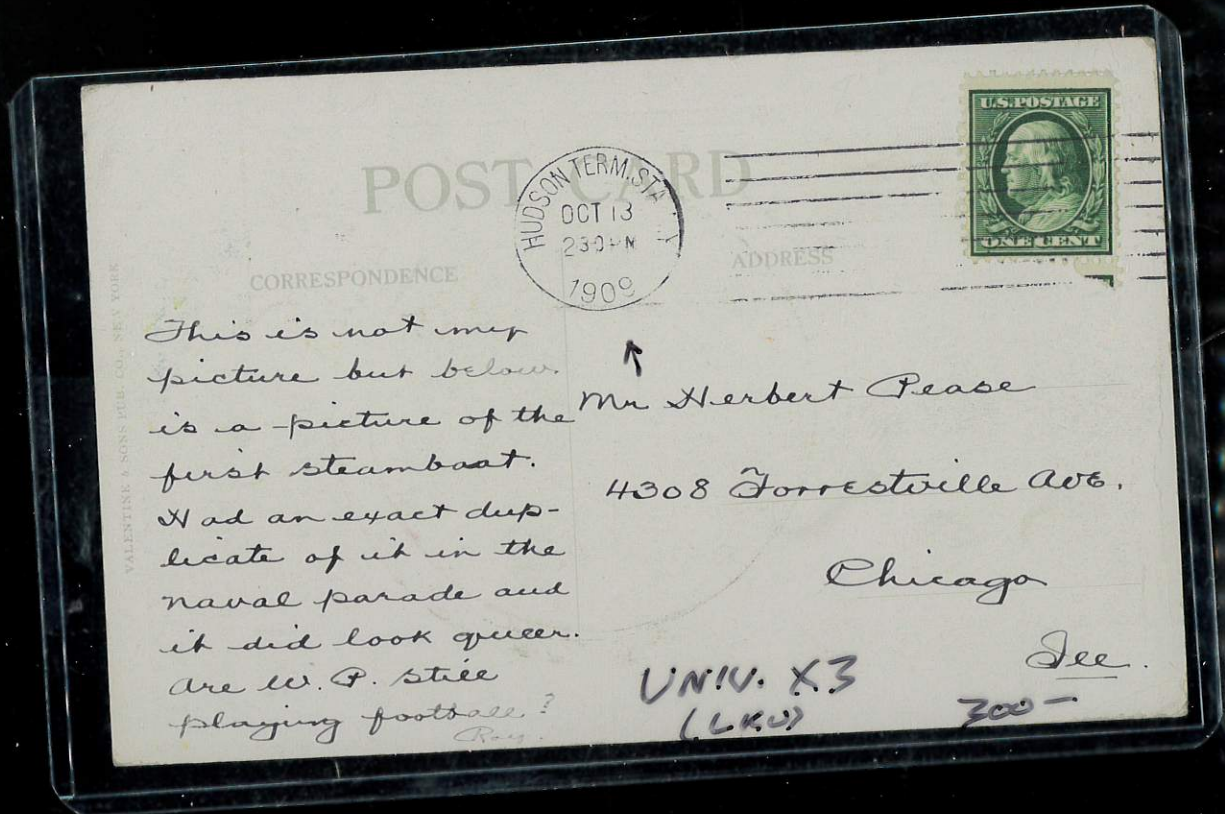 POST CARD
U.S. POSTAGE
ONE CENT
HUDSON TERM. STA. N.Y.
OCT 13
230 PM
1909
CORRESPONDENCE
ADDRESS
VALENTINE & SONS PUB. CO., NEW YORK
This is not my
picture but below
is a picture of the
first steamboat.
Had an exact dup-
licate of it in the
naval parade and
it did look queer.
Are W. P. still
playing football?
Roy.
Mr Herbert Pease
4308 Forrestville Ave.
Chicago
Ill.
UNIV. X3
300-